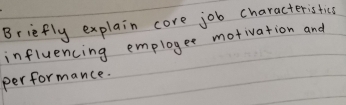 Briefly explain core job characteristics
influencing employee motivation and
performance.